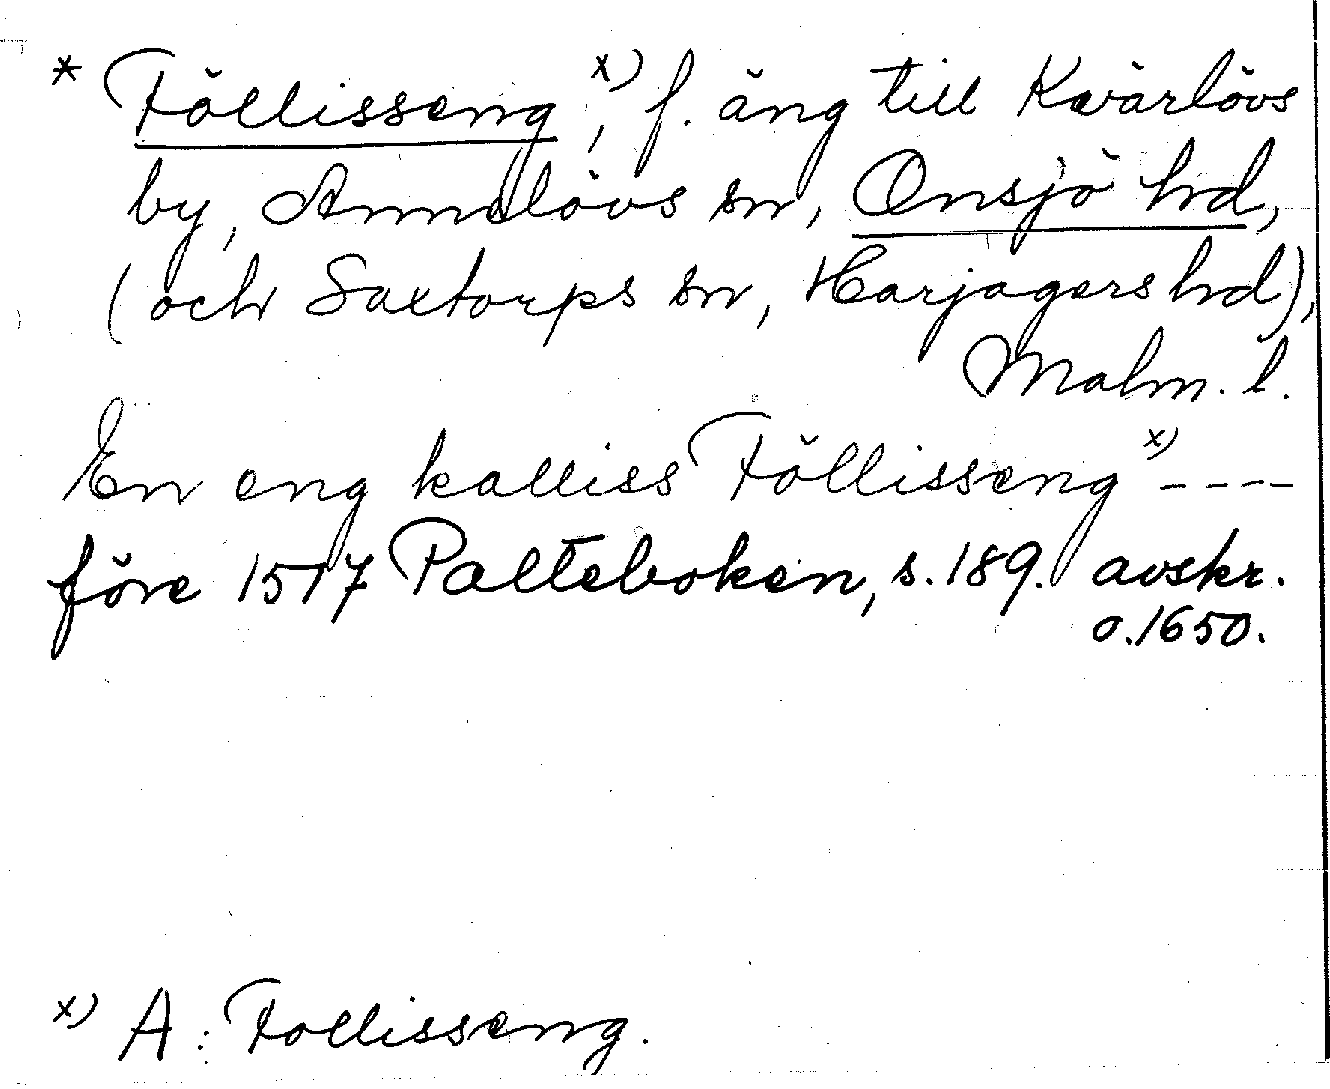 * Föllisseng, x) f. äng till Kvärlövs
by, Annelövs sn, Onsjö hd,
(och Saxtorps sn, Harjagers hd),
Malm. l.
En eng kalliss Föllisseng x) ----
före 1517 Palteboken, s. 189. avskr.
o. 1650.
x) A: Follisseng.